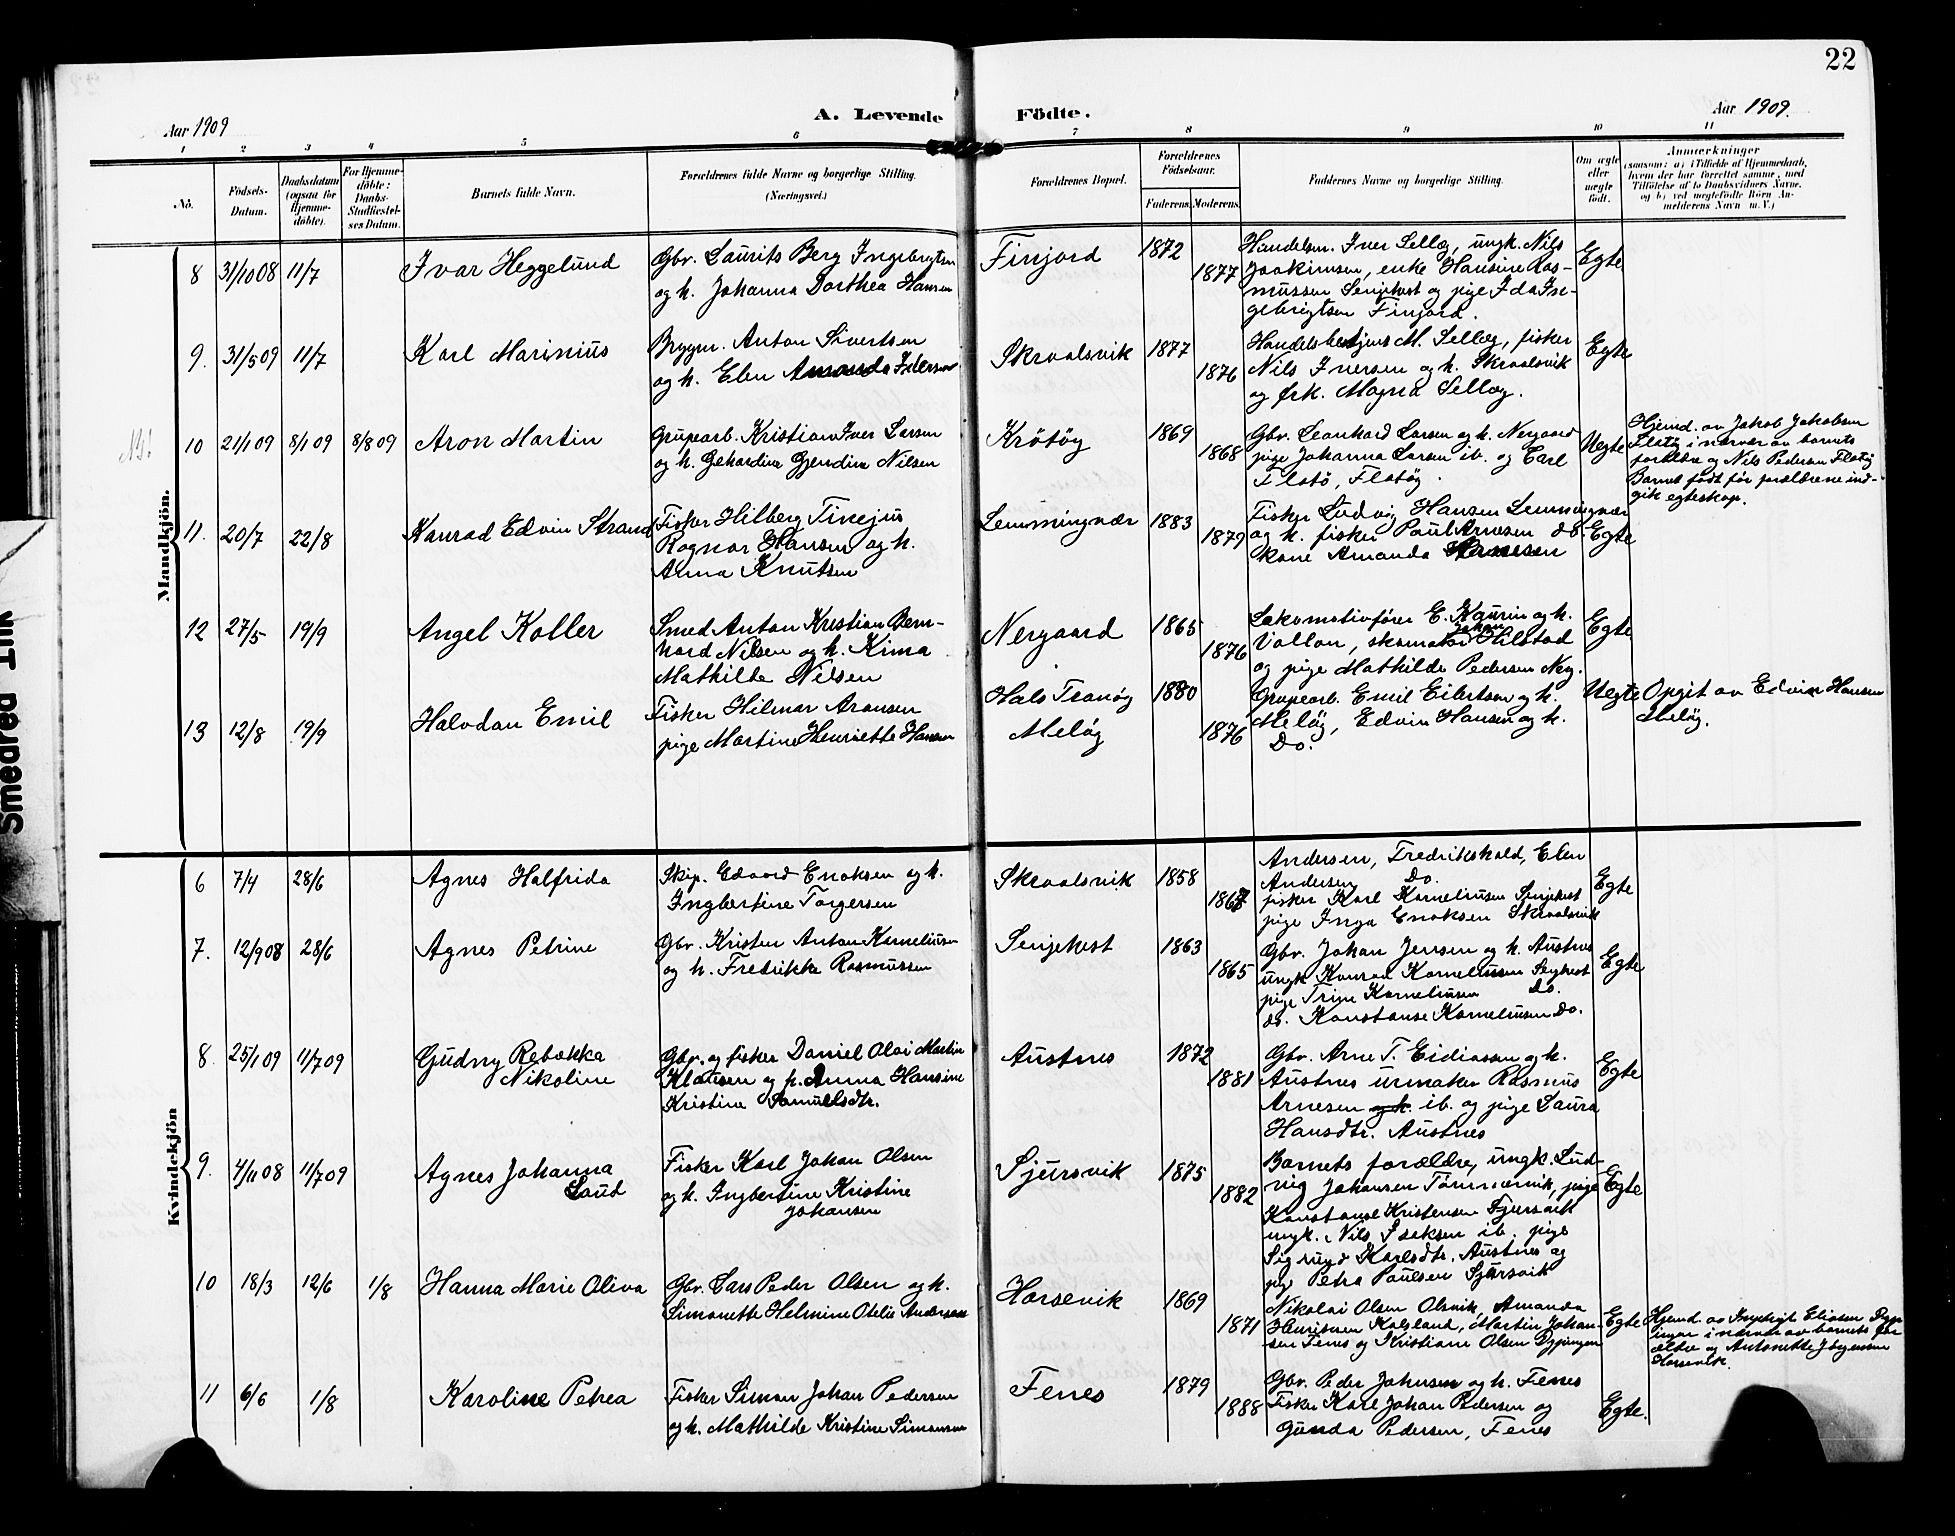 22
Aar 1909
A. Levende Födte.
Aar 1909.
1 2 3 4 5 6 7 8 9 10 11
No.
Födsels-
Datum.
Daabsdatum
(ogsaa for
Hjemme-
döbte).
For Hjemme-
döbte:
Daabs-
Stadfæstel-
ses Datum.
Barnets fulde Navn.
Forældrenes fulde Navne og borgerlige Stilling.
(Næringsvei.)
Forældrenes Bopæl.
Forældrenes
Födselsaar.
Faderens. Moderens.
Faddernes Navne og borgerlige Stilling.
Om ægte
eller
uægte
födt.
Anmærkninger
(saasom: a) i Tilfælde af Hjemmedaab,
hvem der har forrettet samme, med
Tilföielse af to Daabsvidners Navne,
og b) ved uægtefödte Börn An-
melderens Navn m. V.)
Mandkjön.
8 31/10 08 11/7
Ivar Heggelund
Gbr. Laurits Berg Ingebrigtsen
og h. Johanna Dorthea Hansen
Finjord
1872
1877
Handelsm. Iver Lellæg, ungk. Nils
Joakimsen, enke Hansine Ras-
mussen Senjehest og pige Ida In-
gebrigtsen Finjord.
Egte
9. 31/5 09 11/7
Karl Marinius
Bryggm. Anton Sivertsen
og h. Elen Amanda
Skraalsvik
1877
1876
Handelsbetjent M. Lellæg, fisker
Nils Iversen og h. Skraalsvik
og frk. Magna Lellæg.
Egte
10 21/1 09 8/1 09 8/8 09
Aron Martin
Grupearb. Kristian Iver Larsen
og h. Gehardine Gjendine Nilsen
Krötöy
1869
1868
Gbr. Leonhard Larsen og h. Nergaard
pige Johanna Larsen ib. og Carl
Flatö, Flatöy.
Uegte
Hjemd. av Jakob Jakobsen
Flatöy i nærvær av barnets
forældre og Nils Pedersen Flatöy
Barnet födt för forældrene ind-
gik egteskap.
11. 20/7 22/8
Konrad Edvin Strand
Fisker Hilberg Tinejus
Ragnar Hansen og h.
Anna Knutsen
Lemmingvær
1883
1879
Fisker Ludvig Hansen Lemmingvær
og h. fisker Paul Arnesen do.
kone Amanda Arnesen
Egte
12 27/5 19/9
Angel Koller
Smed Anton Kristian Bern-
hard Nilsen og h. Kima
Mathilde Nilsen
Nergaard
1865
1876
Lokomotivförer E. Kaurin og h.
Vollan, skomaker Johan Hilstad
og pige Mathilde Pedersen Nerg.
Egte
13 12/8 19/9
Halvdan Emil
Fisker Hilmar Aronsen
pige Martine Henriette Hansen
Hals Tranöy
Meløy
1880
1876
Grupearb. Emil Eilertsen og h.
Meløy, Edvin Hansen og h.
Do.
Uegte
Opgit av Edvin Hansen
Meløy.
Kvindekjön
6 7/4 28/6
Agnes Halfrida
Skip. Edvard Enoksen og h.
Ingbertine Torgersen
Skraalsvik
1858
1867
Andersen, Fredrikshald, Elen
Andersen Do.
fisker Karl Korneliusen Senjehest
pige Inga Enoksen Skraalsvik
Egte
7. 12/9 08 28/6
Agnes Petrine
Gbr. Kristen Anton Korneliusen
og h. Fredrikke Rasmussen
Senjehest
1863
1865
Gbr. Johan Jensen og h. Austnes
ungk Konrad Korneliusen Senjehest
pige Trine Korneliusen Do.
do. Konstanse Korneliusen Do.
Egte
8. 25/1 09 11/7 09
Gudny Rebekka
Nikoline
Gbr. og fisker Daniel Olai Martin
Klausen og h. Anna Hansine
Kristine Samuelsdtr.
Austnes
1872
1881
Gbr. Arne T. Eidiassen og h.
Austnes urmaker Rasmus
Arnesen og h. ib. og pige Laura
Hansdtr. Austnes
Egte
9. 4/11 08 11/7 09
Agnes Johanna
Laud
Fisker Karl Johan Olsen
og h. Ingbertine Kristine
Johansen
Sjursvik
1875
1882
Barnets forældre, ungk. Lud-
vig Johansen Tömmervik, pige
Konstanse Kristensen Sjursvik
ungk. Nils Isaksen ib. pige
Signyd Karlsdtr. Austnes og
pige Petra Paulsen Sjursvik
Egte
10 18/3 12/6 1/8
Hanna Marie Oliva
Gbr. Lars Peder Olsen og h.
Simonette Helmine Otelie Andersen
Horsevik
1869
1871
Nikolai Olsen Olsvik, Amanda
Henriksen Kalsland, Martin Johan-
sen Fenes og Kristiane Olsen
Egte
Hjemd. av Ingebrigt Eliasen
i nærvær av barnets for
ældre og Antonette Jörgensen
Horsevik.
11 6/6 1/8
Karoline Petrea
Fisker Simon Johan Pedersen
og h. Mathilde Kristine Simonsen
Fenes
1879
1888
Gbr. Peder Johnsen og h. Fenes
Fisker Karl Johan Pedersen og
Gunda Pedersen, Fenes
Egte.
Smedred Ink